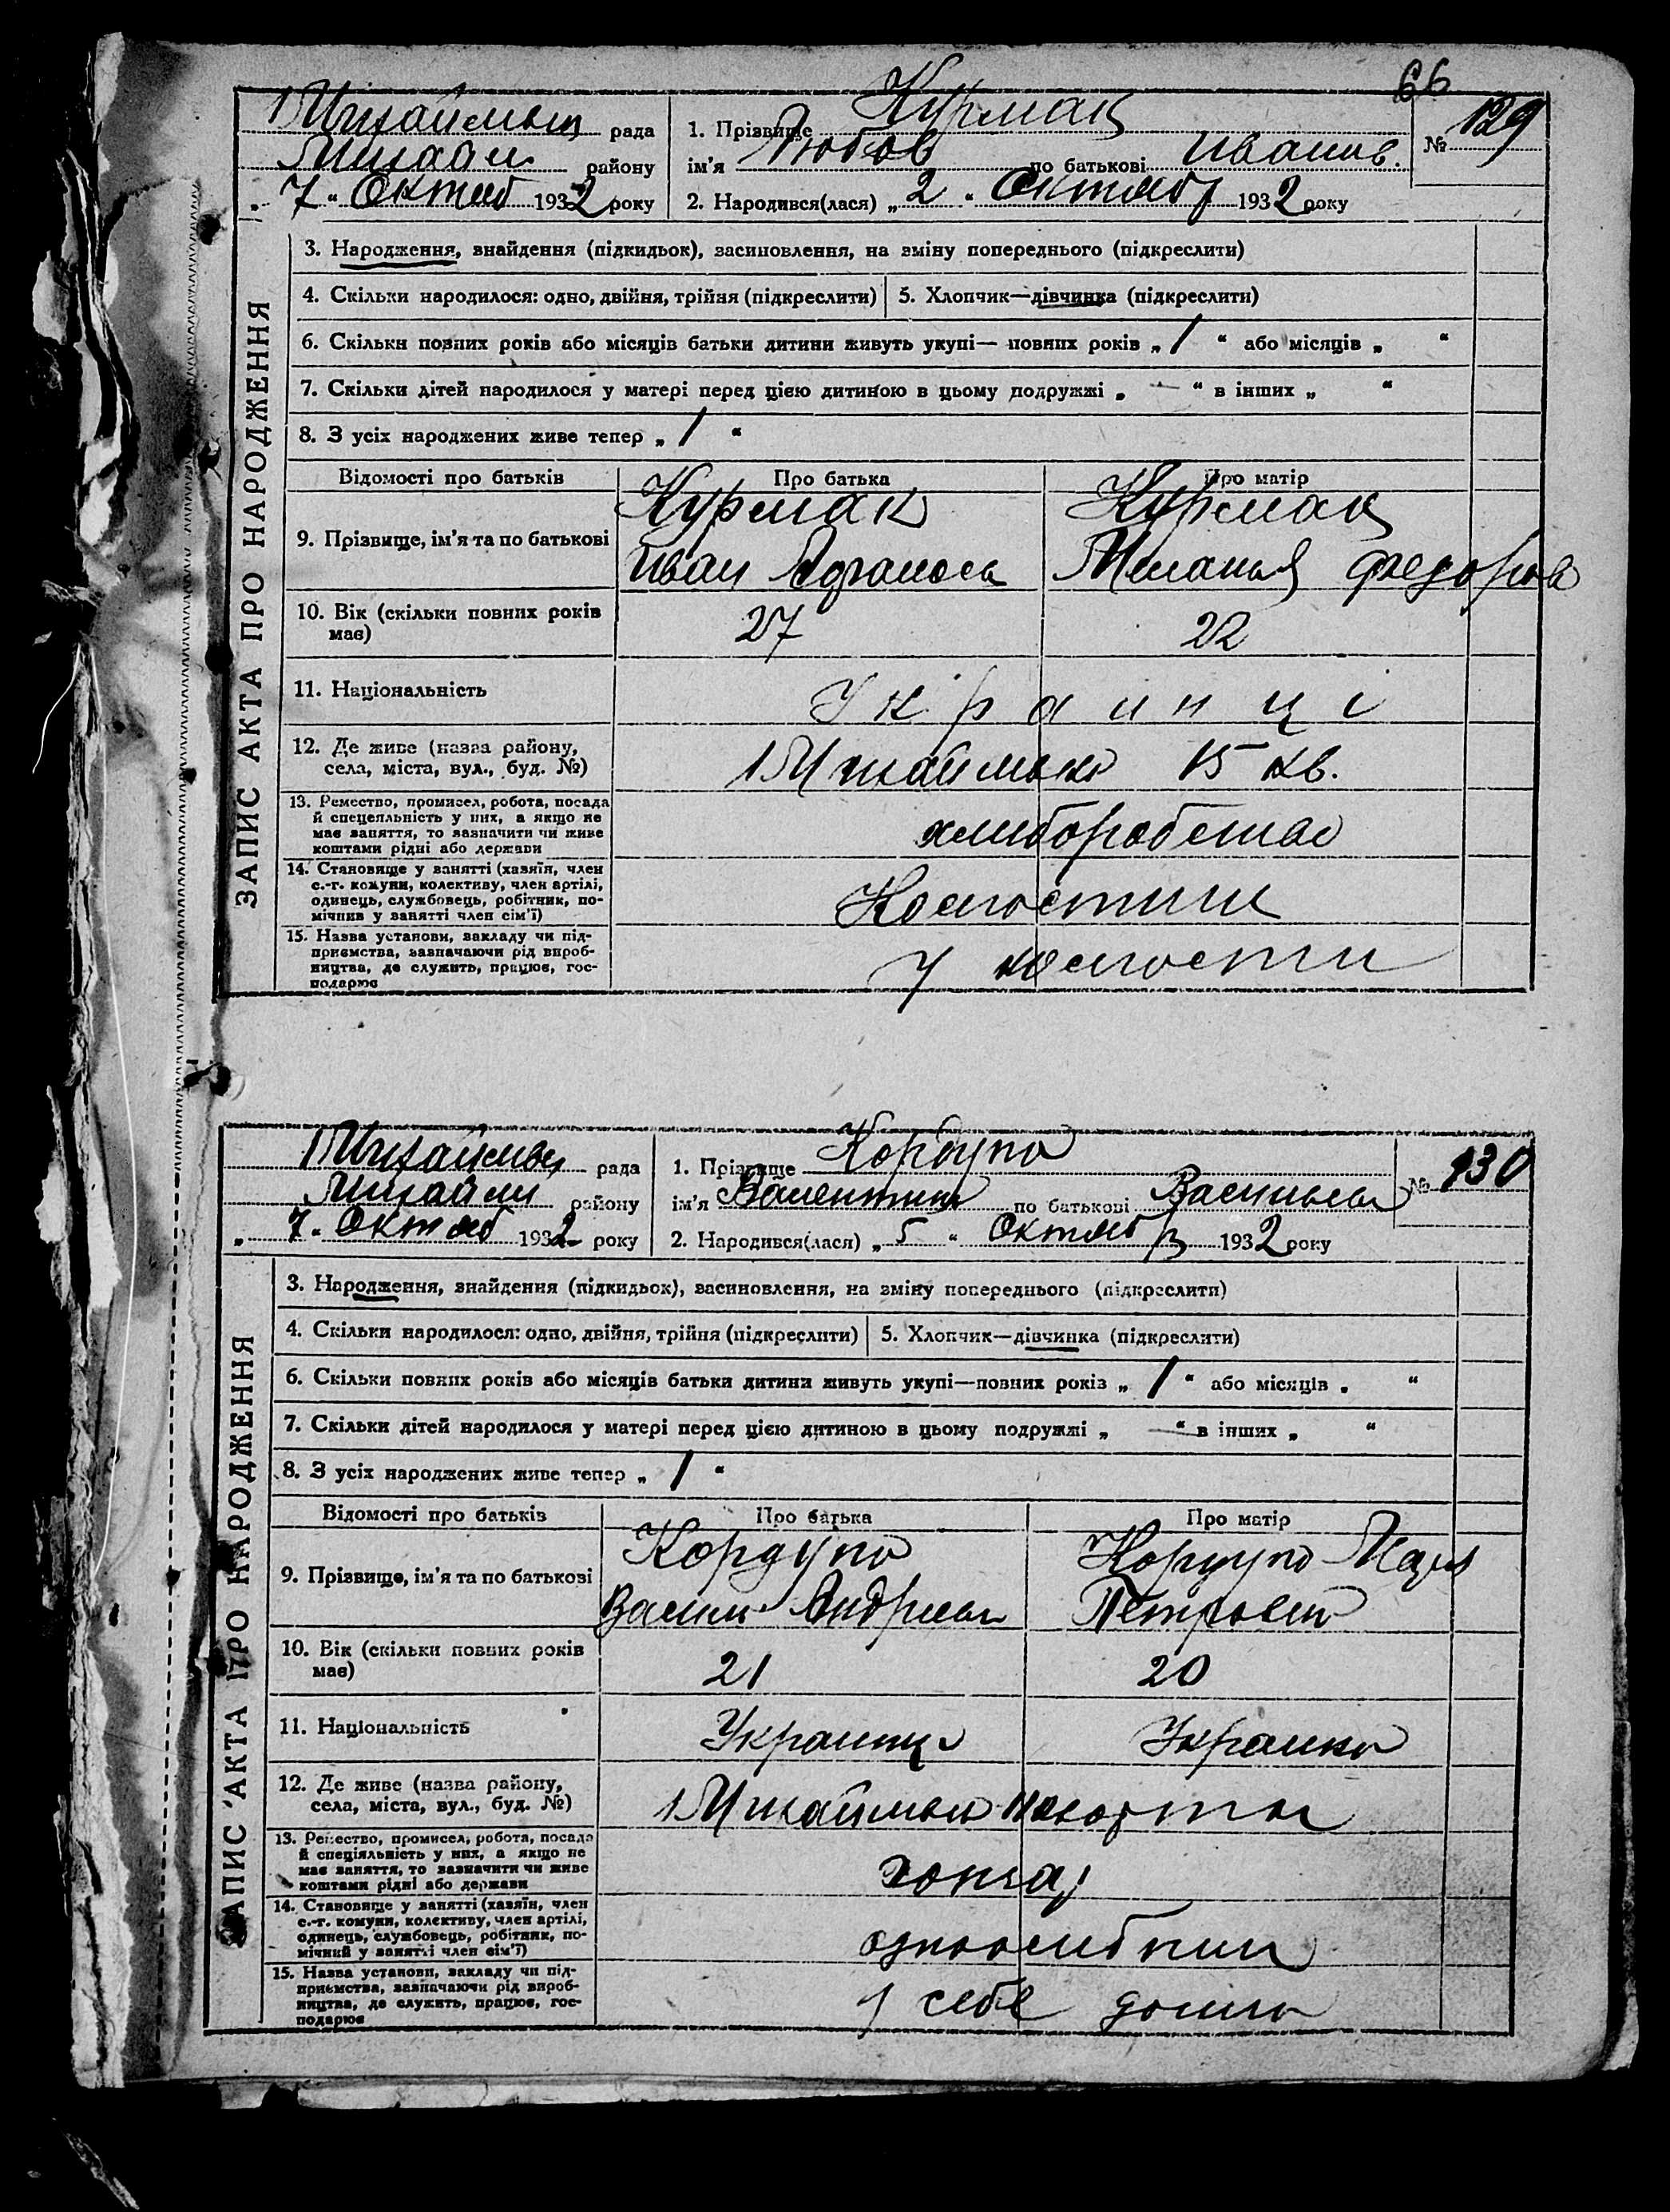 66
1 Михайлівськ рада
Михайл району
„ 7 “ Октяб 1932 року
1. Прізвище Курмак
ім'я Любов по батькові Иванив.
2. Народився(лася) „ 2 “ Октябр 1932 року
№ 129
ЗАПИС АКТА ПРО НАРОДЖЕННЯ
3. Народження, знайдення (підкидьок), засиновлення, на зміну попереднього (підкреслити)
4. Скільки народилося: одно, двійня, трійня (підкреслити)
5. Хлопчик—дівчинка (підкреслити)
6. Скільки повних років або місяців батьки дитини живуть укупі— повних років „ 1 “ або місяців „ “
7. Скільки дітей народилося у матері перед цією дитиною в цьому подружжі „ — “ в інших „ “
8. З усіх народжених живе тепер „ 1 “
Відомості про батьків
Про батька
Про матір
9. Прізвище, ім'я та по батькові
Курмак
Иван
Курмак
Мелания Федоров
10. Вік (скільки повних років
має)
27
22
11. Національність
Украинці
12. Де живе (назва району,
села, міста, вул., буд. №)
1 Михайливка 15 кв.
13. Ремество, промисел, робота, посада
й спецеяльність у них, а якщо не
має заняття, то зазначити чи живе
коштами рідні або держави
хлиборобство
14. Становище у занятті (хазяїн, член
с.-г. комуни, колективу, член артілі,
одинець, службовець, робітник, по-
мічник у занятті член сім'ї)
15. Назва установи, закладу чи під-
приємства, зазначаючи рід вироб-
ництва, де служить, працює, гос-
подарює
У
1 Михайлівськ рада
Михайли району
„ 7 “ Октяб 1932 року
1. Прізвище Кордупа
ім'я Валентина по батькові Васильевн
2. Народився(лася) „ 5 “ Октябр 1932 року
№ 130
ЗАПИС АКТА ПРО НАРОДЖЕННЯ
3. Народження, знайдення (підкидьок), засиновлення, на зміну попереднього (підкреслити)
4. Скільки народилося: одно, двійня, трійня (підкреслити)
5. Хлопчик—дівчинка (підкреслити)
6. Скільки повних років або місяців батьки дитини живуть укупі—повних років „ 1 “ або місяців „ “
7. Скільки дітей народилося у матері перед цією дитиною в цьому подружжі „ — “ в інших „ “
8. З усіх народжених живе тепер „ 1 “
Відомості про батьків
Про батька
Про матір
9. Прізвище, ім'я та по батькові
Кордупа
Васил Андреев
Кордупа Мария
Петровна
10. Вік (скільки повних років
має)
21
20
11. Національність
Украинец
Украинка
12. Де живе (назва району,
села, міста, вул., буд. №)
1 Михайливка
13. Ремество, промисел, робота, посада
й спеціяльність у них, а якщо не
має заняття, то зазначити чи живе
коштами рідні або держави
гончар
14. Становище у занятті (хазяїн, член
с.-г. комуни, колективу, член артілі,
одинець, службовець, робітник, по-
мічний у занятті член сім'ї)
одноосибник
15. Назва установи, закладу чи під-
приємства, зазначаючи рід вироб-
ництва, де служить, працює, гос-
подарює
У себе дома